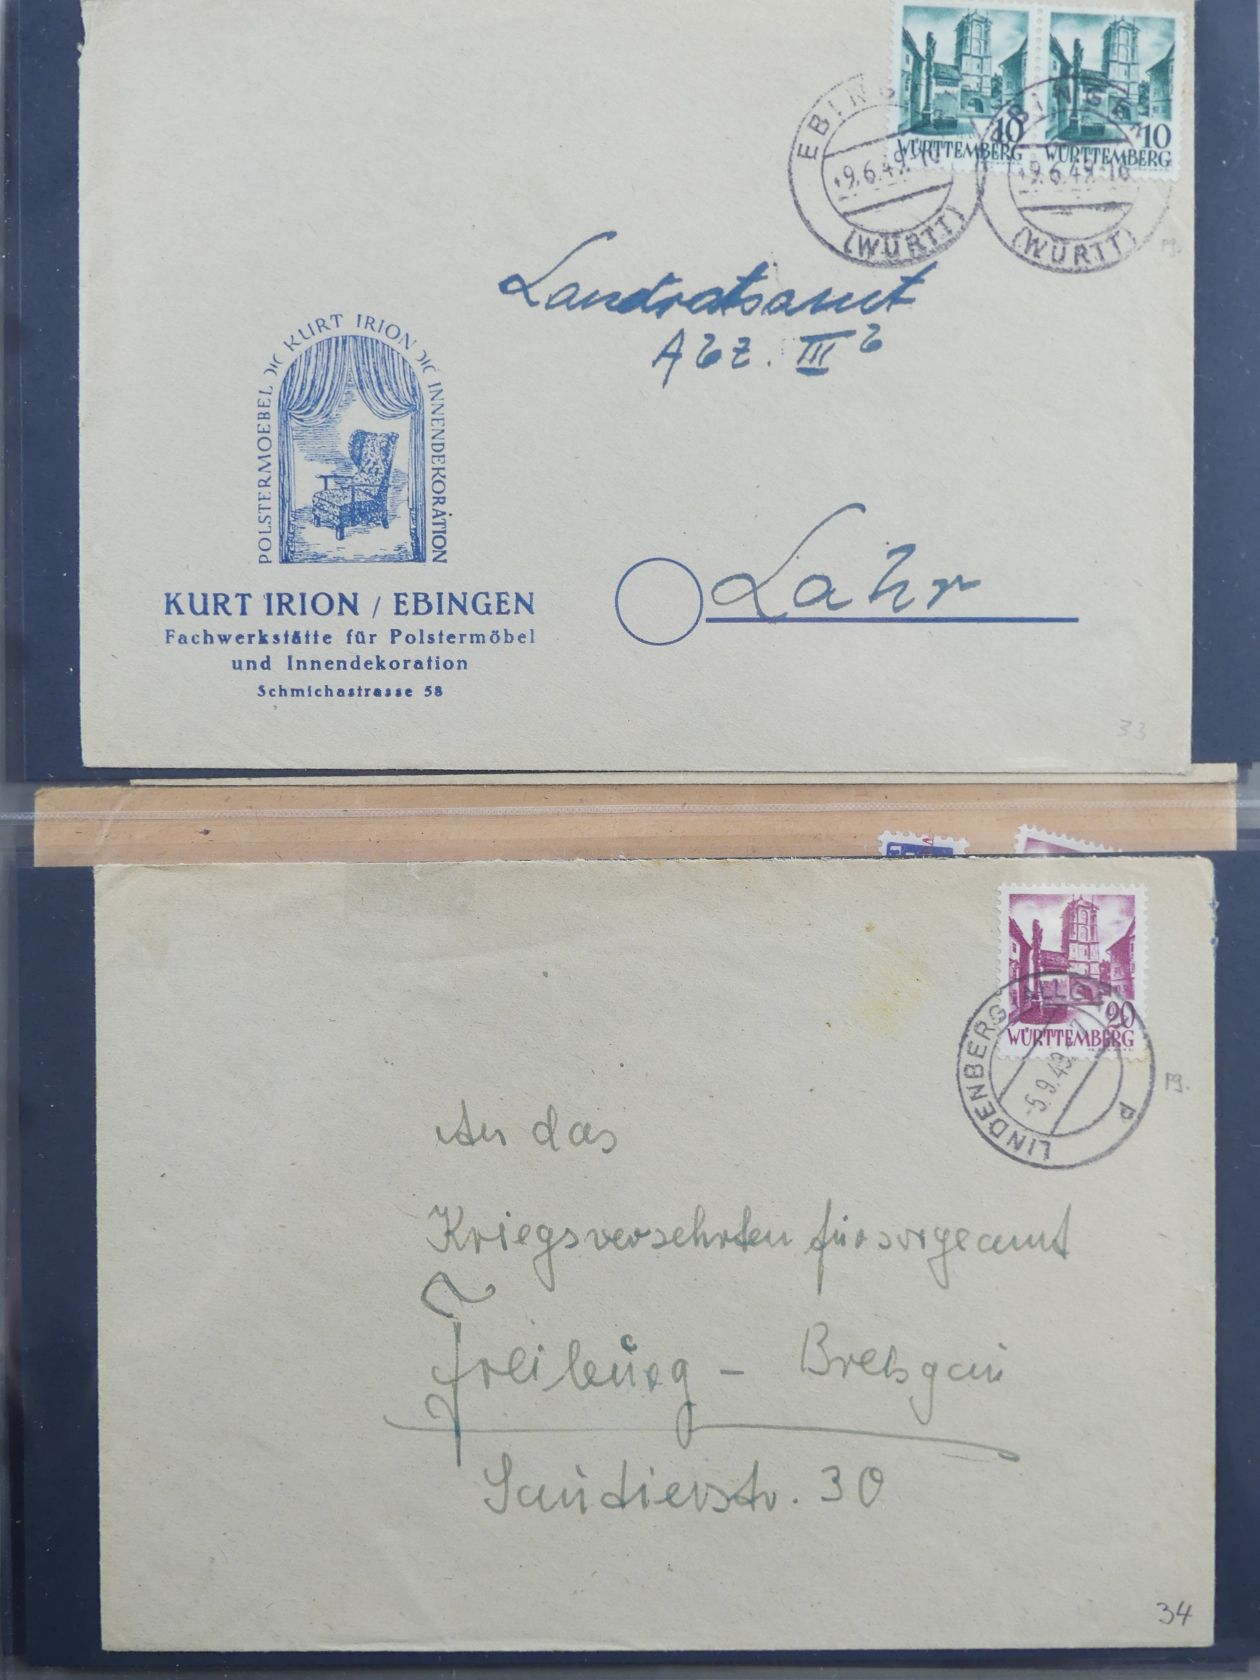 10
WÜRTTEMBERG
10
WÜRTTEMBERG
EBINGEN
9.6.49.-16
(WÜRTT)
EBINGEN
9.6.49.-16
(WÜRTT)
Pg.
Landratsamt
Abz. III b
POLSTERMOEBEL KURT IRION INNENDEKORATION
Lahr
KURT IRION / EBINGEN
Fachwerkstätte für Polstermöbel
und Innendekoration
Schmichastrasse 58
33
20
WÜRTTEMBERG
LINDENBERG
-5.9.49
P
Pg.
An das
Kriegsversehrten fürsorgeamt
Freiburg -
Sautierstr. 30
34